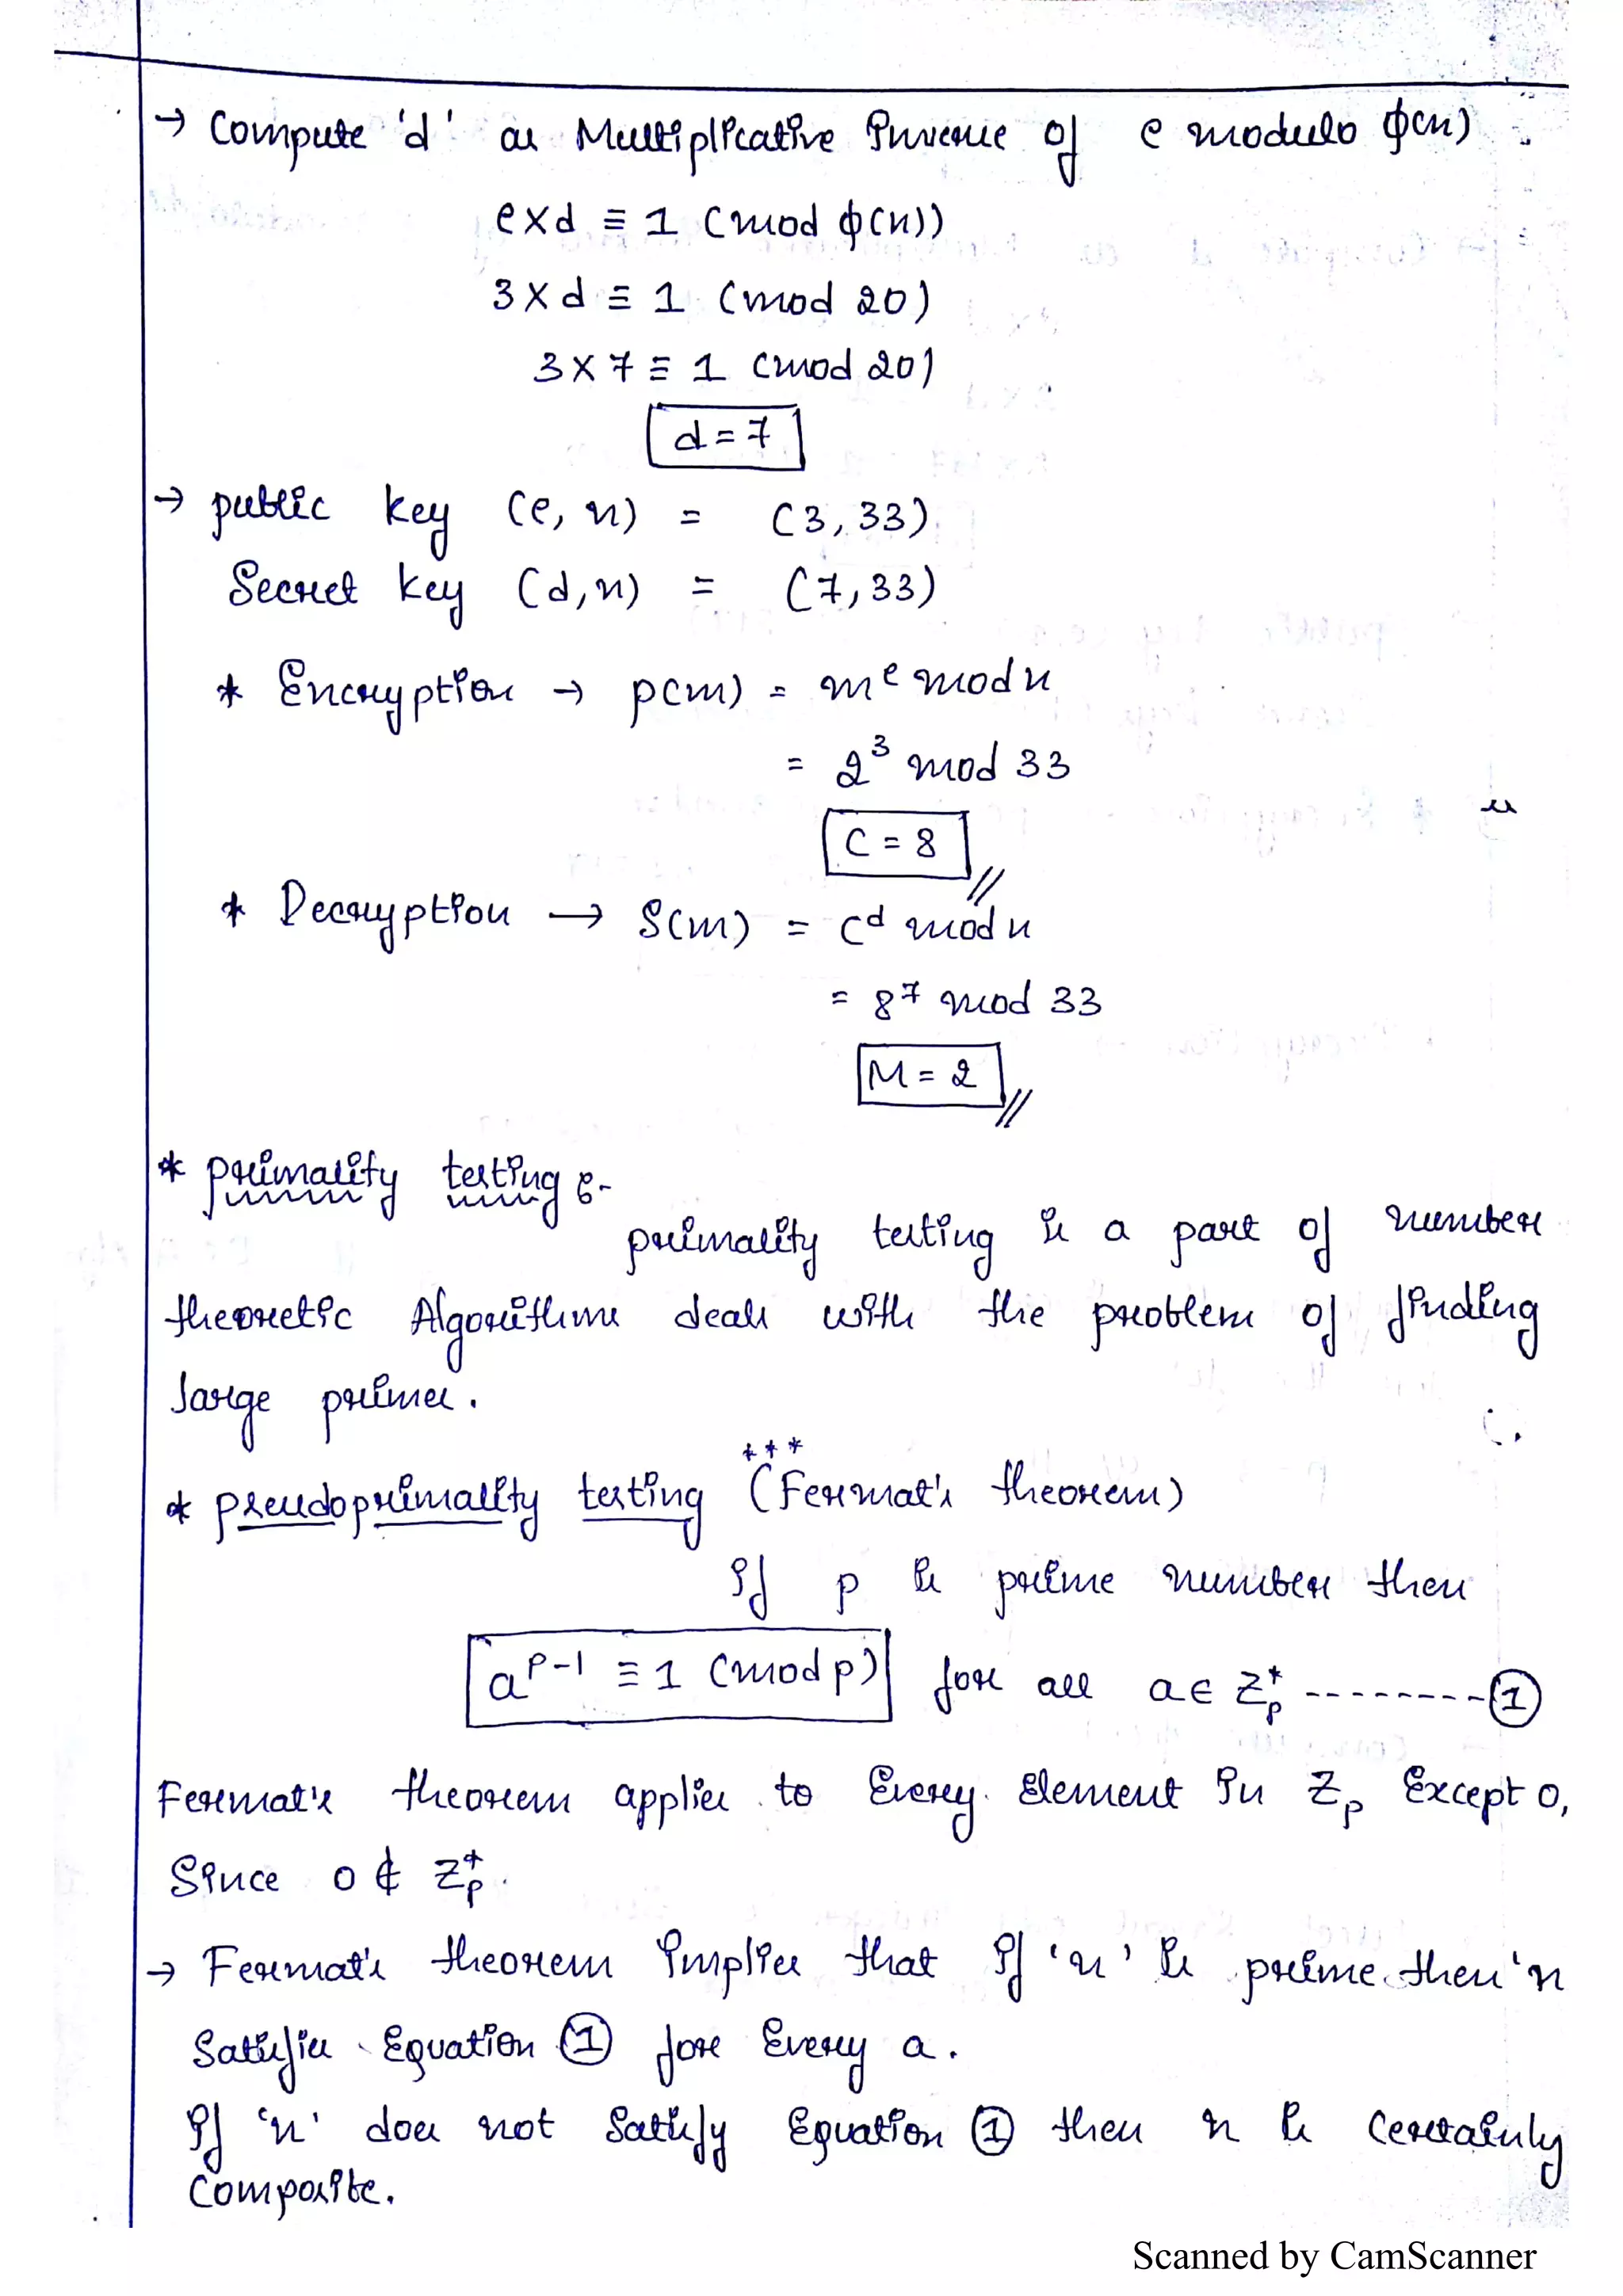 → Compute 'd' as Multiplicative Inverse of e modulo ϕ(n)
e×d ≡ 1 (mod ϕ(n))
3×d ≡ 1 (mod 20)
3×7 ≡ 1 (mod 20)
d=7
→ public key (e, n) = (3, 33)
Secret key (d, n) = (7, 33)
* Encryption → p(m) = m^e mod n
= 2^3 mod 33
C = 8
* Decryption → S(m) = C^d mod n
= 8^7 mod 33
M = 2
* primality testing :-
primality testing is a part of number
theoretic Algorithms deals with the problem of finding
large primes.
***
* pseudoprimality testing (Fermat's theorem)
If p is prime number then
a^{p-1} ≡ 1 (mod p) for all a ∈ Z_p^* -------- ①
Fermat's theorem applies to Every Element in Z_p Except 0,
Since 0 ∉ Z_p^*.
→ Fermat's theorem Implies that If 'n' is prime then 'n
Satisfies Equation ① for Every a.
If 'n' does not Satisfy Equation ① then n is Certainly
Composite.
Scanned by CamScanner